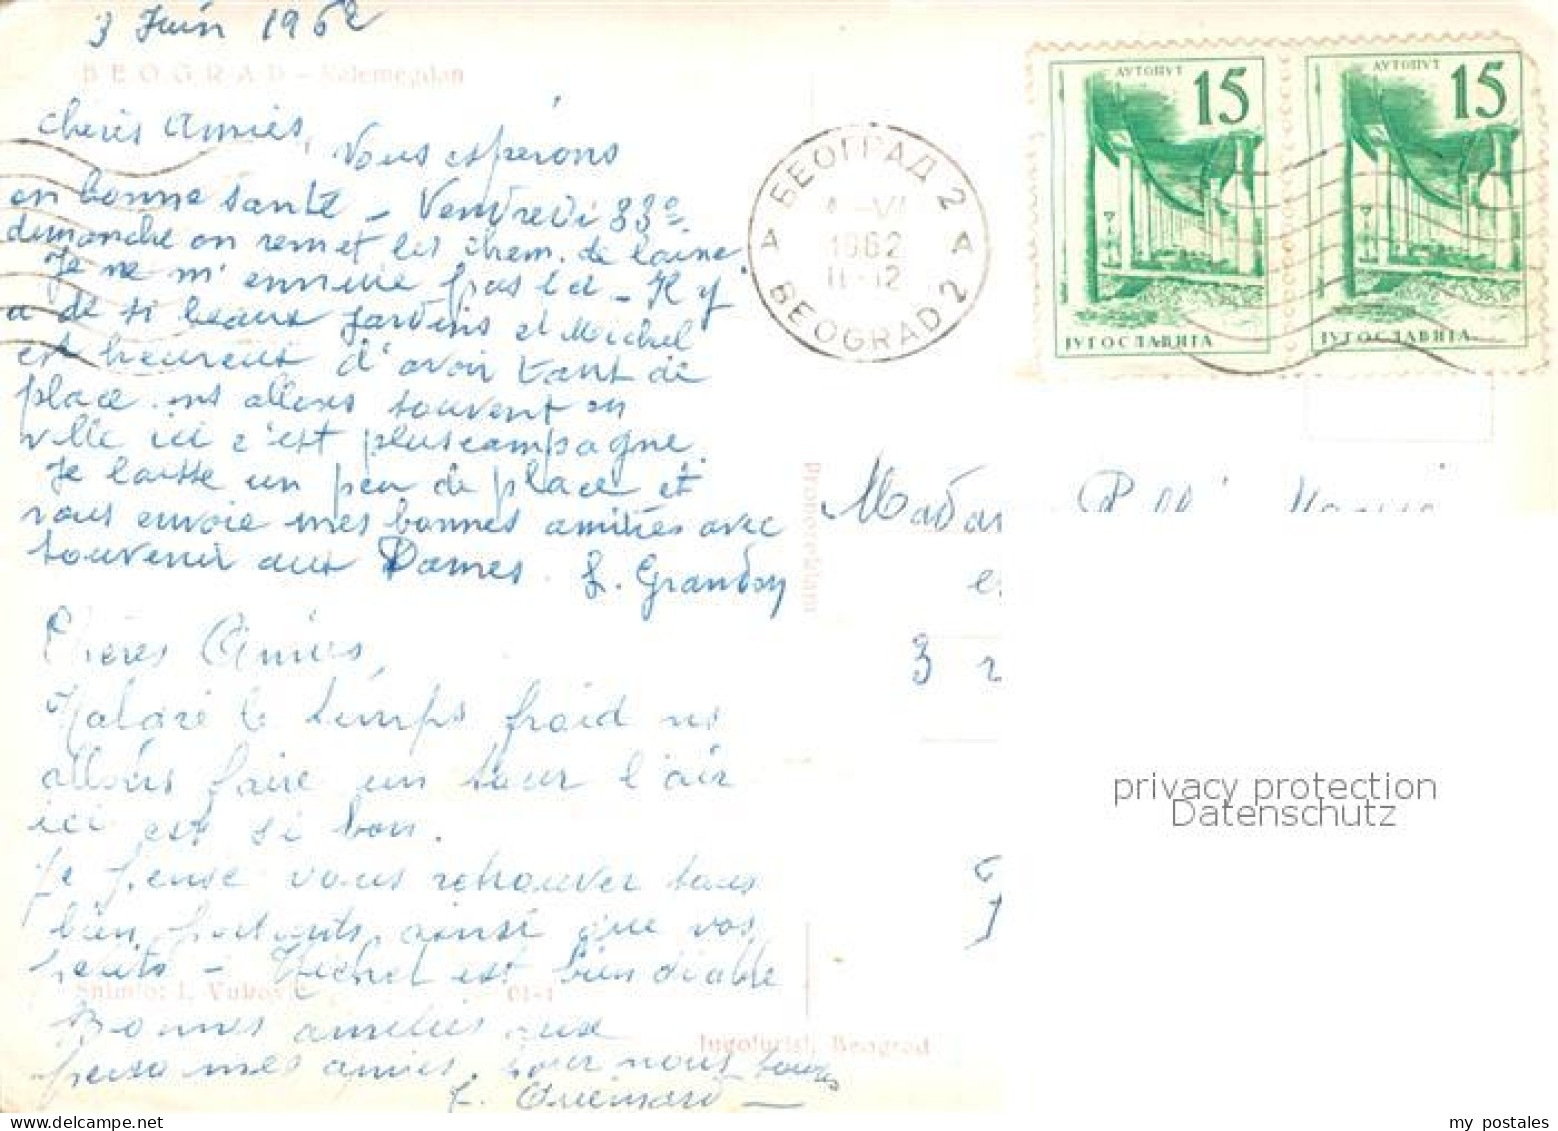 3 Juin 1962
BEOGRAD - Kalemegdan
Chères Amies,
Vous espérons
en bonne santé - Vendredi 33°
dimanche on remet les chem. de laine.
Je ne m'ennuie pas ici - Il y
a de si beaux jardins et Michel
est heureux d'avoir tant de
place. ns allons souvent en
ville ici c'est plus campagne.
Je laisse un peu de place et
vous envoie mes bonnes amitiés avec
souvenir aux Dames. L. Grandon
Chères Amies,
Malgré le temps froid ns
allons faire un tour l'air
ici est si bon.
Je pense vous retrouver tous
bien portants, ainsi que vos
petits - Michel est bien diable
Bonnes amitiés aux
mes amies, pour nous toutes
Snimio: I. Vuković
01-1
Jugoturist, Beograd
БЕОГРАД 2
A A
4-VI
1962
11-12
BEOGRAD 2
АУТОПУТ
15
ЈУГОСЛАВИЈА
АУТОПУТ
15
ЈУГОСЛАВИЈА
3
privacy protection
Datenschutz
my postales